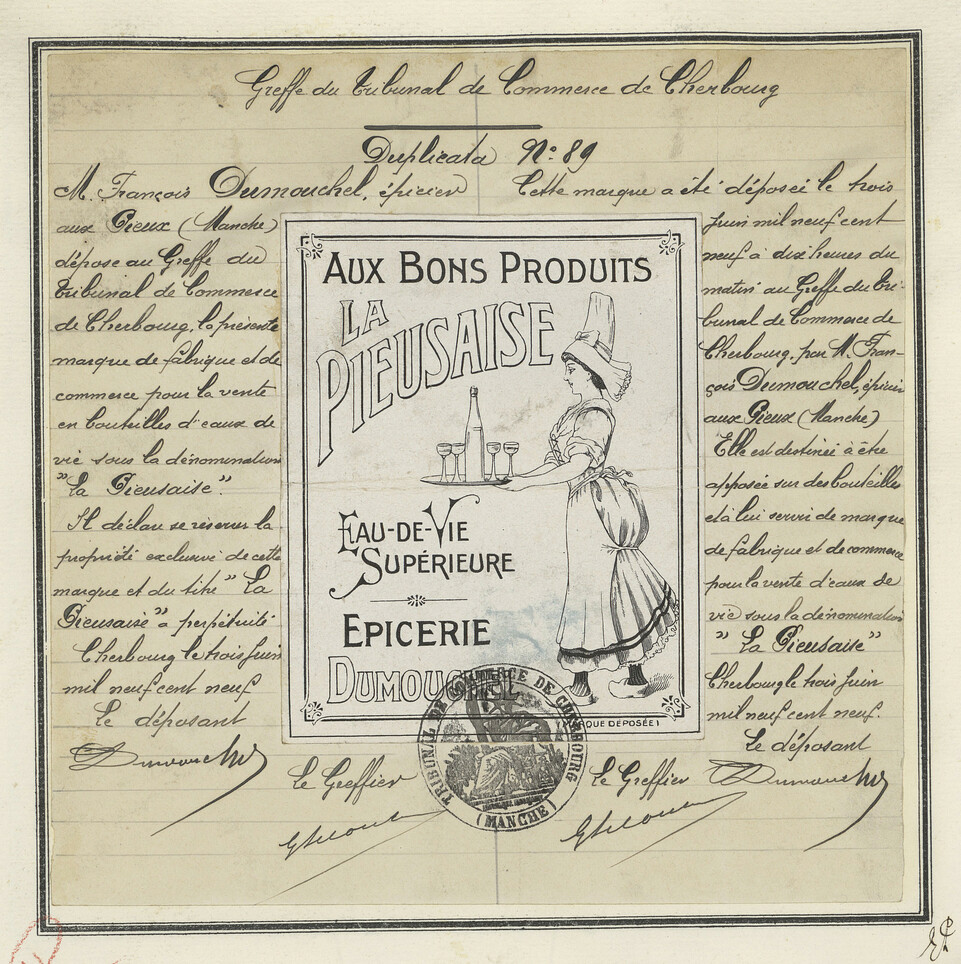 Greffe du Tribunal de Commerce de Cherbourg
Duplicata N°: 89
M. François Dumouchel, épicier
aux Pieux (Manche)
dépose au Greffe du
Tribunal de Commerce
de Cherbourg, la présente
marque de fabrique et de
commerce pour la vente
en bouteilles d'eaux de
vie sous la dénomination
"La Pieusaise".
Il déclare se réserver la
propriété exclusive de cette
marque et du titre "La
Pieusaise" à perpétuité
Cherbourg le trois Juin
mil neuf cent neuf
Le déposant
Dumouchel
Le Greffier
AUX BONS PRODUITS
LA
PIEUSAISE
EAU-DE-VIE
SUPÉRIEURE
EPICERIE
DUMOUCHEL
QUE DÉPOSÉE
TRIBUNAL DE COMMERCE DE CHERBOURG
(MANCHE)
Cette marque a été déposée le trois
Juin mil neuf cent
neuf à dix heures du
matin au Greffe du Tri-
bunal de Commerce de
Cherbourg, par M. Fran-
çois Dumouchel, épicier
aux Pieux (Manche)
Elle est destinée à être
apposée sur des bouteilles
et à lui servir de marque
de fabrique et de commerce
pour la vente d'eaux de
vie sous la dénomination
"La Pieusaise"
Cherbourg le trois Juin
mil neuf cent neuf.
Le déposant
Dumouchel
Le Greffier